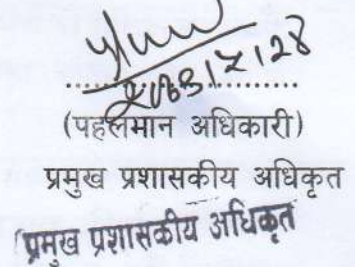 (पहलमान अधिकारी)
प्रमुख प्रशासकीय अधिकृत
प्रमुख प्रशासकीय अधिकृत